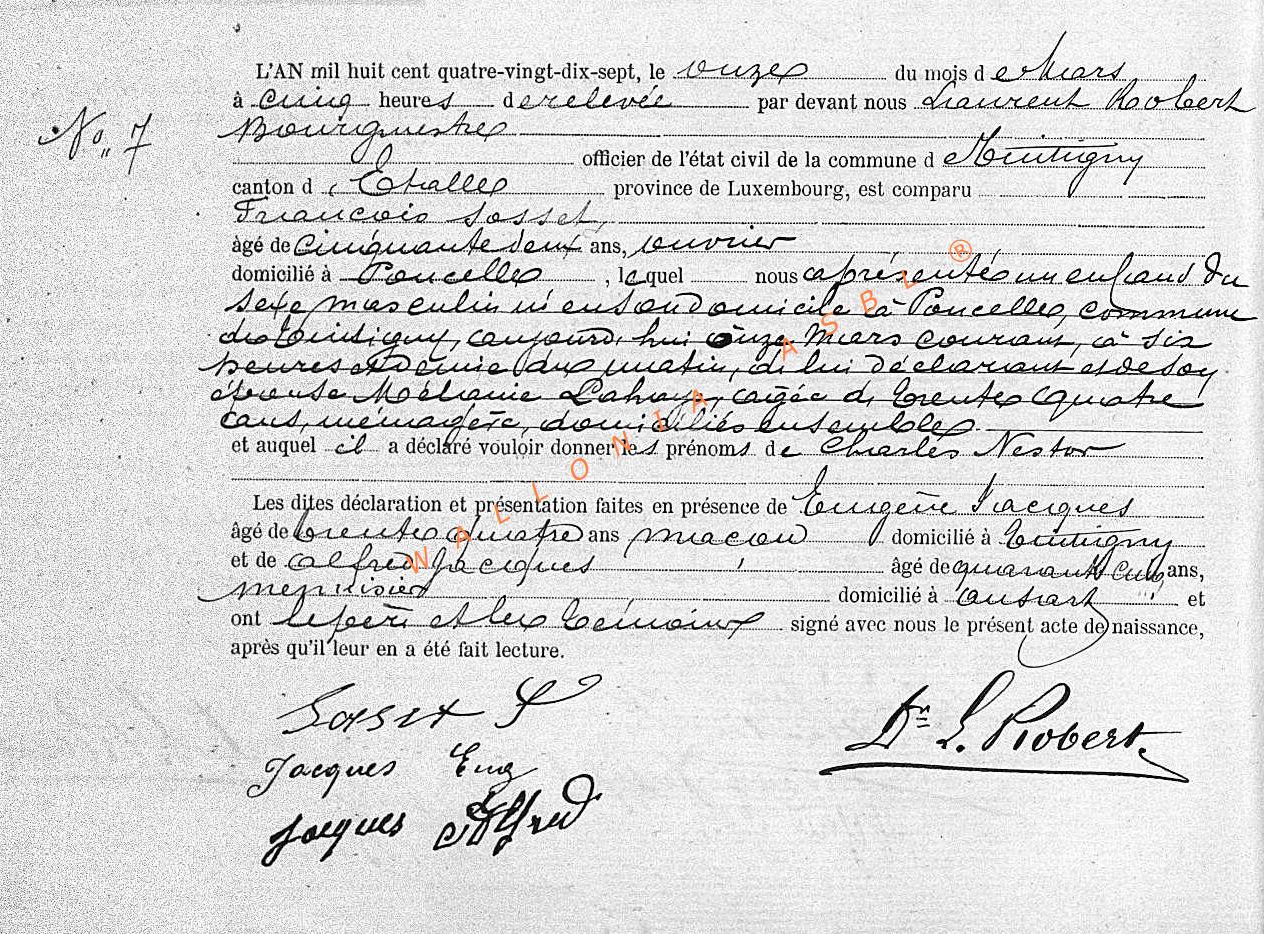 L'AN mil huit cent quatre-vingt-dix-sept, le onze du mois de Mars
à cinq heures de relevée par devant nous Laurent Robert
No 7
Bourgmestre
officier de l'état civil de la commune de Tintigny
canton d'Etalle province de Luxembourg, est comparu
François Sosset,
âgé de cinquante deux ans, ouvrier
domicilié à Poncelle, lequel nous a présenté un enfant du
sexe masculin né en son domicile à Poncelle, commune
de Tintigny, aujourd'hui onze Mars courant, à six
heures et demie du matin, de lui déclarant et de son
épouse Mélanie Lahaye, âgée de trente quatre
ans, ménagère, domiciliés ensemble
et auquel il a déclaré vouloir donner les prénoms de Charles Nestor
Les dites déclaration et présentation faites en présence de Eugène Jacques
âgé de trente quatre ans maçon domicilié à Tintigny
et de Alfred Jacques âgé de quarante cinq ans,
menuisier domicilié à Ansart et
ont le père et les témoins signé avec nous le présent acte de naissance,
après qu'il leur en a été fait lecture.
Sosset F
Jacques Eug
Jacques Alfred
Dr L. Robert.
WALLONIA ASBL ®